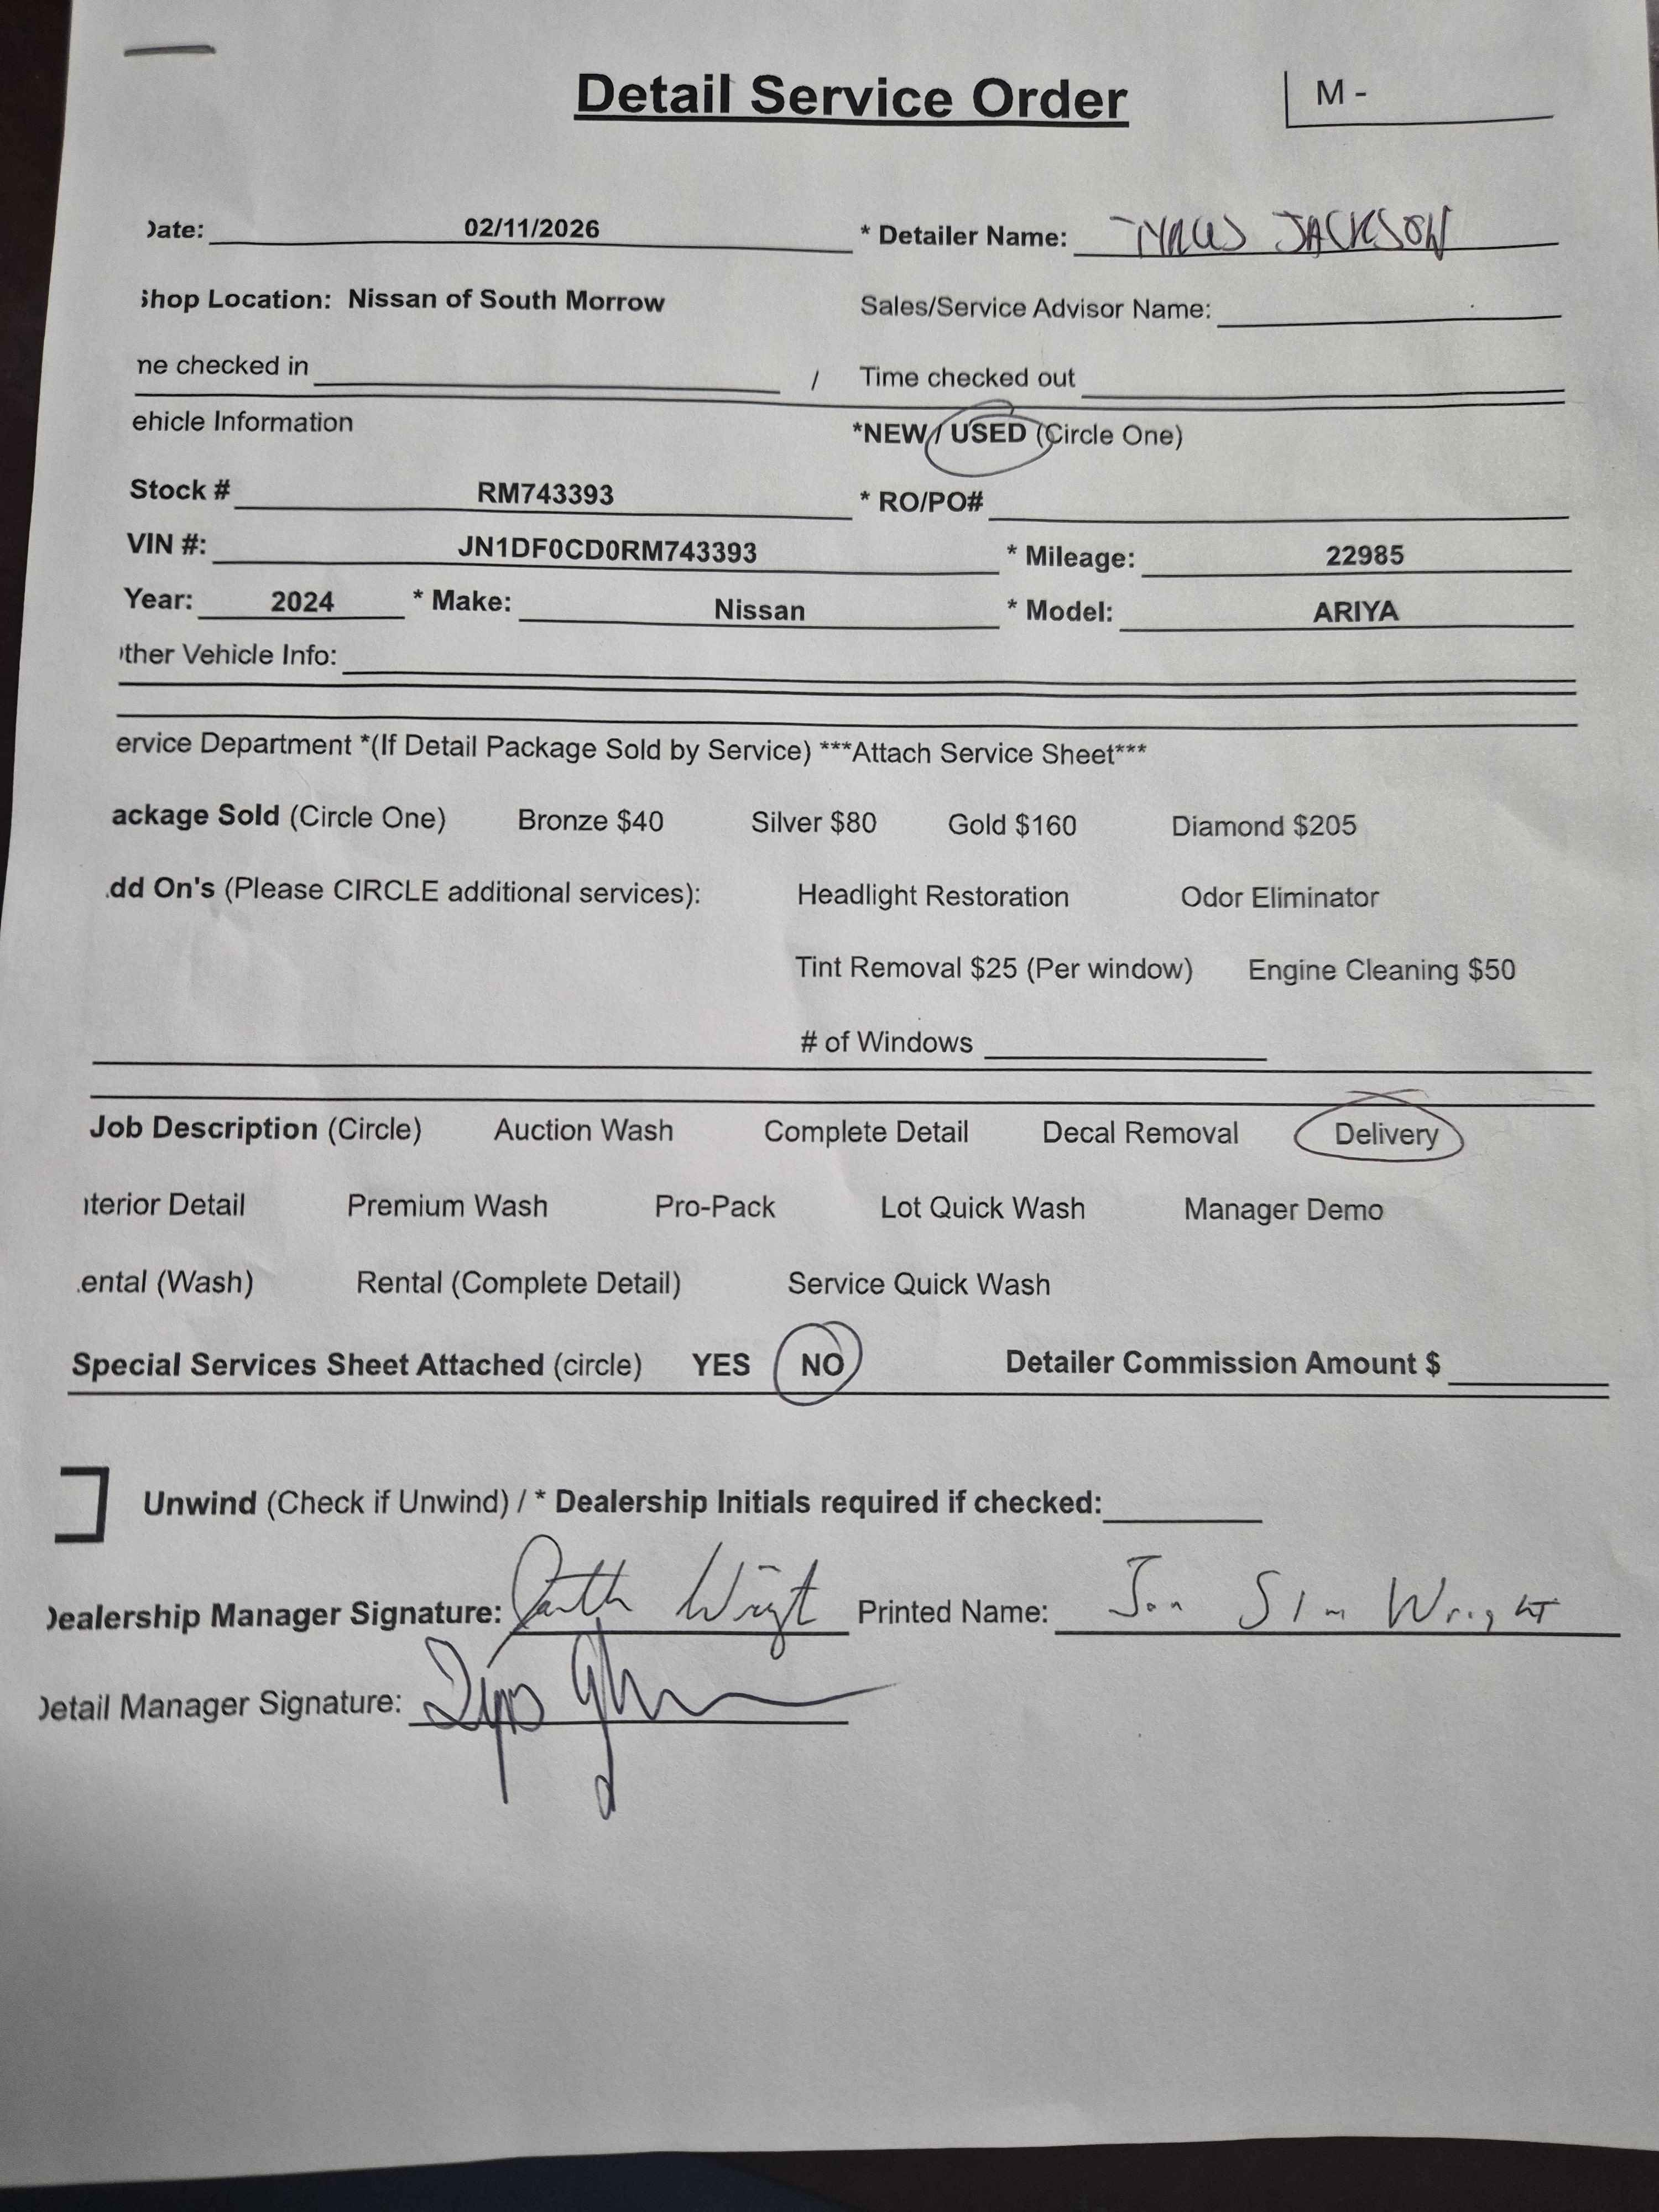 Detail Service Order
M -
Date: 02/11/2026 * Detailer Name: TYRUS JACKSON
Shop Location: Nissan of South Morrow Sales/Service Advisor Name:
me checked in / Time checked out
ehicle Information *NEW / USED (Circle One)
Stock # RM743393 * RO/PO#
VIN #: JN1DF0CD0RM743393 * Mileage: 22985
Year: 2024 * Make: Nissan * Model: ARIYA
ther Vehicle Info:
ervice Department *(If Detail Package Sold by Service) ***Attach Service Sheet***
ackage Sold (Circle One) Bronze $40 Silver $80 Gold $160 Diamond $205
dd On's (Please CIRCLE additional services): Headlight Restoration Odor Eliminator
Tint Removal $25 (Per window) Engine Cleaning $50
# of Windows
Job Description (Circle) Auction Wash Complete Detail Decal Removal Delivery
nterior Detail Premium Wash Pro-Pack Lot Quick Wash Manager Demo
ental (Wash) Rental (Complete Detail) Service Quick Wash
Special Services Sheet Attached (circle) YES NO Detailer Commission Amount $
Unwind (Check if Unwind) / * Dealership Initials required if checked:
Dealership Manager Signature: Wright Printed Name: Jon Wright
Detail Manager Signature: